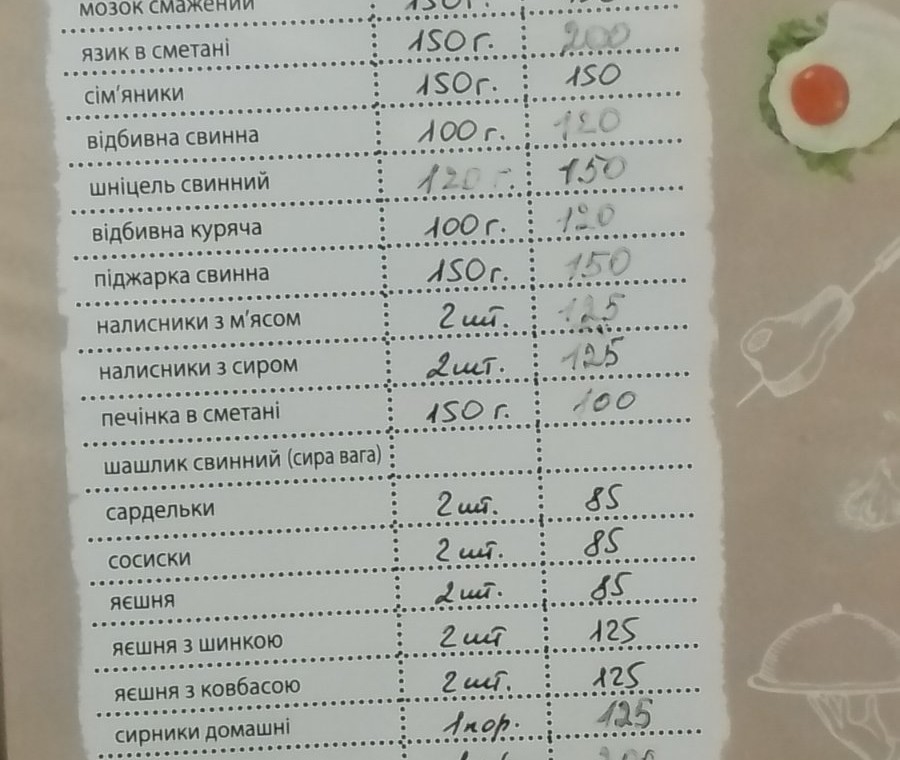 мозок смажений 150г.
язик в сметані 150г. 200
сім'яники 150г. 150
відбивна свинна 100г. 120
шніцель свинний 120г. 150
відбивна куряча 100г. 120
піджарка свинна 150г. 150
налисники з м'ясом 2шт. 125
налисники з сиром 2шт. 125
печінка в сметані 150г. 100
шашлик свинний (сира вага)
сардельки 2шт. 85
сосиски 2шт. 85
яєшня 2шт. 85
яєшня з шинкою 2шт 125
яєшня з ковбасою 2шт. 125
сирники домашні 1пор. 125